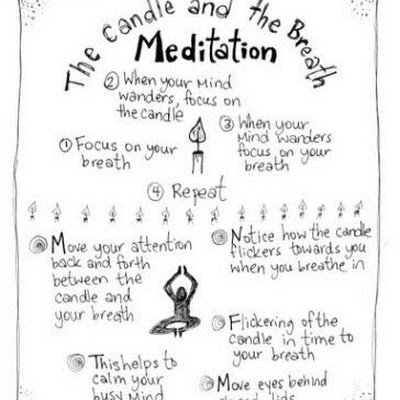 The Candle and the Breath
Meditation
② When your Mind
wanders, focus on
the candle
① Focus on your
breath
③ When your
Mind wanders
focus on your
breath
④ Repeat
Move your attention
back and forth
between the
candle and
your breath
Notice how the candle
flickers towards you
when you breathe in
Flickering of the
candle in time to
your breath
This helps to
calm your
busy Mind
Move eyes behind
lids